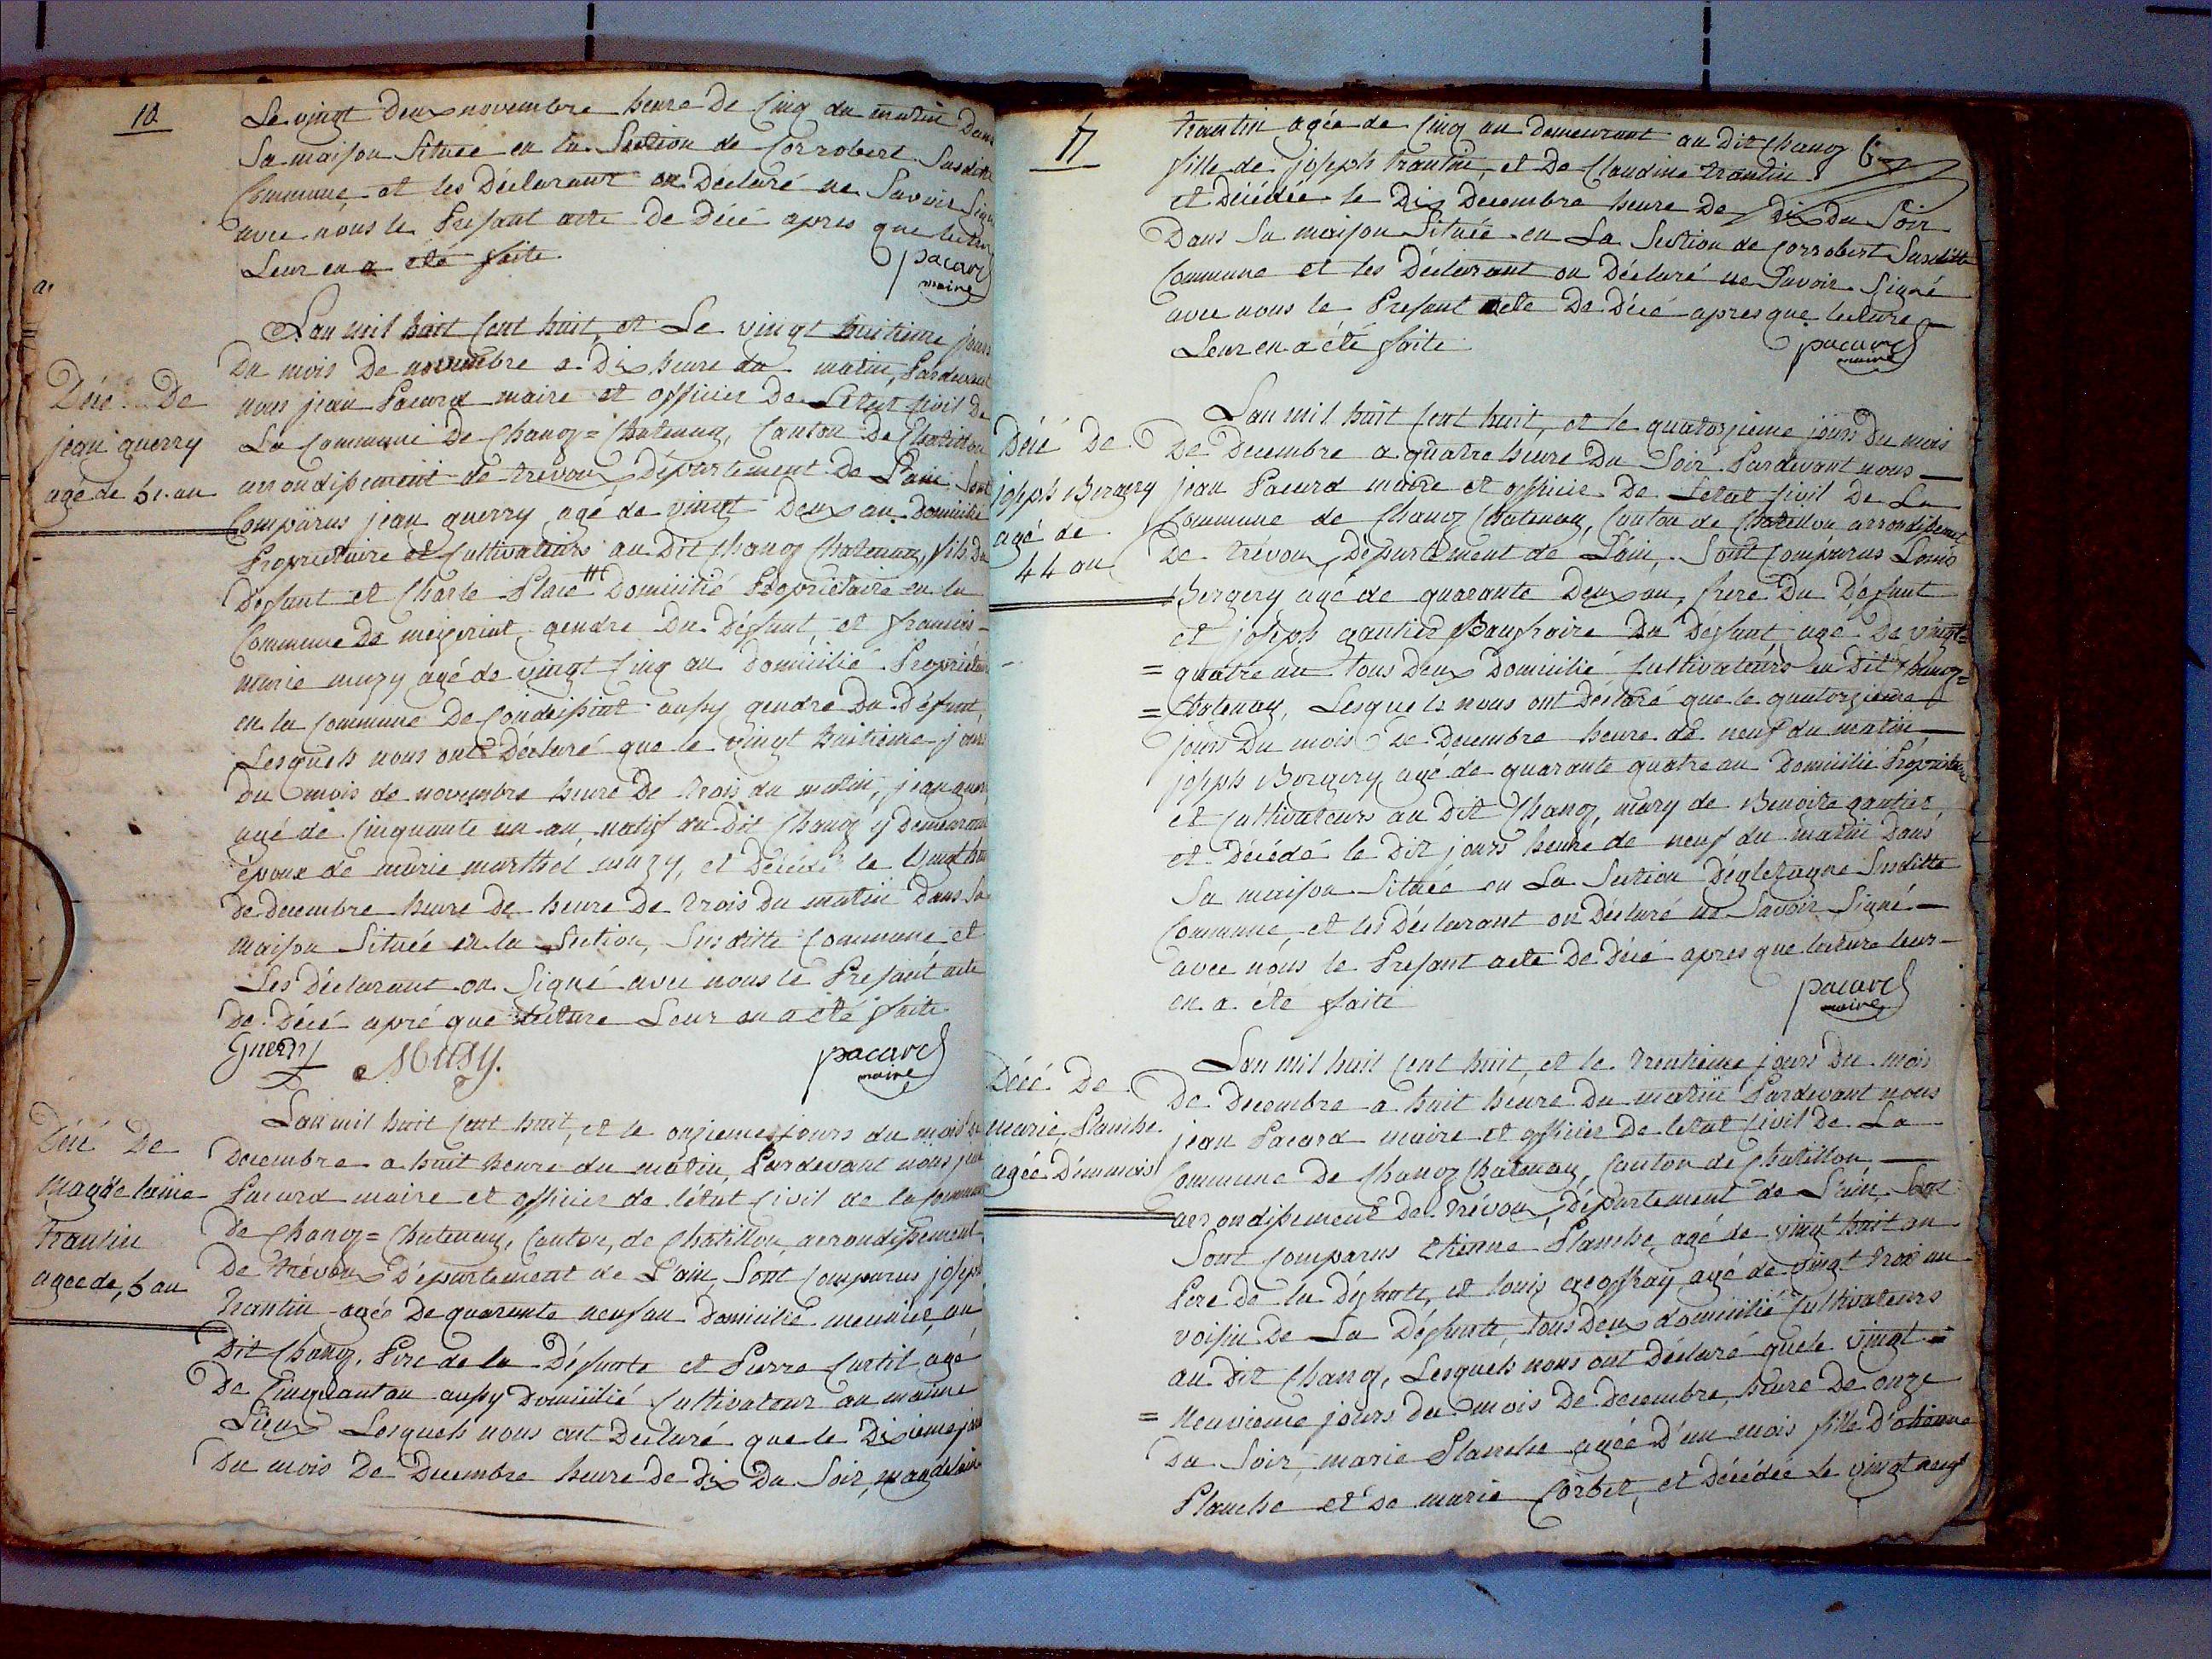 10
Le vingt deux novembre heure de cinq du matin dans
sa maison située en la Section de Corrobert susditte
Commune et les Déclarant on Declaré ne Savoir Signé
avec nous le Présant acte De Décé apres que lecture
Leur en a été faite
pacard
maire
Décé De
jean guerry
agé de 51 an
Lan mil huit cent huit, et Le vingt huitieme jours
Du mois De novembre a Dix heure du matin, Pardevant
nous jean Pacard maire et officier De Letat civil de
La Commune De Chanoz=Chatenay, Canton De Chatillon
arrondissement de trevoux Département De L'ain Sont
Comparus jean guerry agé de vingt Deux an Domicilié
Proprietaire et Cultivateurs au Dit Chanoz Chatenay, fils Du
Défant et Charle Place Domicilié Propriétaire en la
Commune De mezeriat, gendre Du Défunt, et francois
marie muzy agé de vingt cinq an Domicilié Propriétaire
en la Commune De Condeissiat aussy gendre Du Défunt,
Lesquels nous ont Déclaré que le vingt huitieme jours
Du mois de novembre heure De trois du matin, jean guerry
agé de Cinquante un an, natif au Dit Chanoz y Demeurant
époux de marie marthet muzy, et Décédé le vingt huit
de decembre heure de heure de trois du matin Dans Sa
maison Située en la Section, Susditte Commune et
Les Déclarant on Signé avec nous le Présant acte
De Décé apré que lecture Leur en a été faite
Guerry Musy. pacard
maire
Décé De
magdelaine
trantin
agée de, 5 an
Lan mil huit cent huit, et le onzieme jours du mois de
Decembre a huit heure du matin, Pardevant nous jean
Pacard maire et officier de létat civil de la Commune
De Chanoz=Chatenay, Canton, de Chatillon, arrondissement
De trévoux Département de L'ain, Sont Comparus joseph
trantin agée De quarante neuf an Domicilié meunier, au
Dit Chanoz, Pere de la Défunte et Pierre Curtil agé
De Cinquant an aussy Domicilié Cultivateur au maime
Lieux Lesquels nous ont Declaré que le Dixieme jours
Du mois De Decembre heure De dix Du Soir, magdelaine
11
trantin agée de Cinq an Demeurant au Dit Chanoz
fille de joseph trantin, et De Claudine trantin
et Décédée le Dix Decembre heure De Dix Du Soir
Dans Sa maison Située en La Section de Corrobert Susditte
Commune et les Déclarant on Déclaré ne Savoir Signé
avec nous le Présant acte De Décé apres que lecture
Leur en a été faite
pacard
maire
Décé De
joseph Bergery
agé de
44 an
Lan mil huit cent huit, et le quatorzieme jours Du mois
De Decembre a quatre heure Du Soir Pardevant nous
jean Pacard maire et officier De Letat civil De La
Commune de Chanoz Chatenay, Canton de Chatillon arrondissement
De trévoux, Département de L'ain, Sont Comparus Louis
Bergery agé de quarante Deux an, frere Du Défunt
et joseph gautier Baufraire Du Défunt agé De vingt=
=quatre an tous Deux Domicilié Cultivateurs au Dit Chanoz=
=Chatenay, Lesquels nous ont Déclaré que le quatorzieme
jours Du mois De Decembre heure de neuf du matin
joseph Bergery agé de quarante quatre an Domicilié Propriétaire
et Cultivateurs au Dit Chanoz, mary de Benoite gautier
et Décédé le Dit jours heure de neuf du matin Dans
Sa maison Située en La Section Susditte
Commune, et les Déclarant on Déclaré ne Savoir Signé
avec nous le Présant acte De Décé apres que lecture leur
en a été faite
pacard
maire
Décé De
marie Planche
agée D'un mois
Lan mil huit cent huit, et le trentieme jours Du mois
De Decembre a huit heure Du matin Pardevant nous
jean Pacard maire et officier De letat civil De La
Commune De Chanoz Chatenay, Canton de Chatillon
arrondissement De trévoux Département de L'ain Sont
Sont Comparus Etienne Planche agé de vingt huit an
Pere De la Défunte, et louis geoffray agé de vingt trois an
voisin De La Défunte, tous Deux domicilié Cultivateurs
au Dit Chanoz, Lesquels nous ont Déclaré que le vingt=
=neuvieme jours du mois De decembre, heure De onze
Du Soir, marie Planche agée D'un mois fille D'etienne
Planche et de marie Corbet, et Décédée le vingt neuf